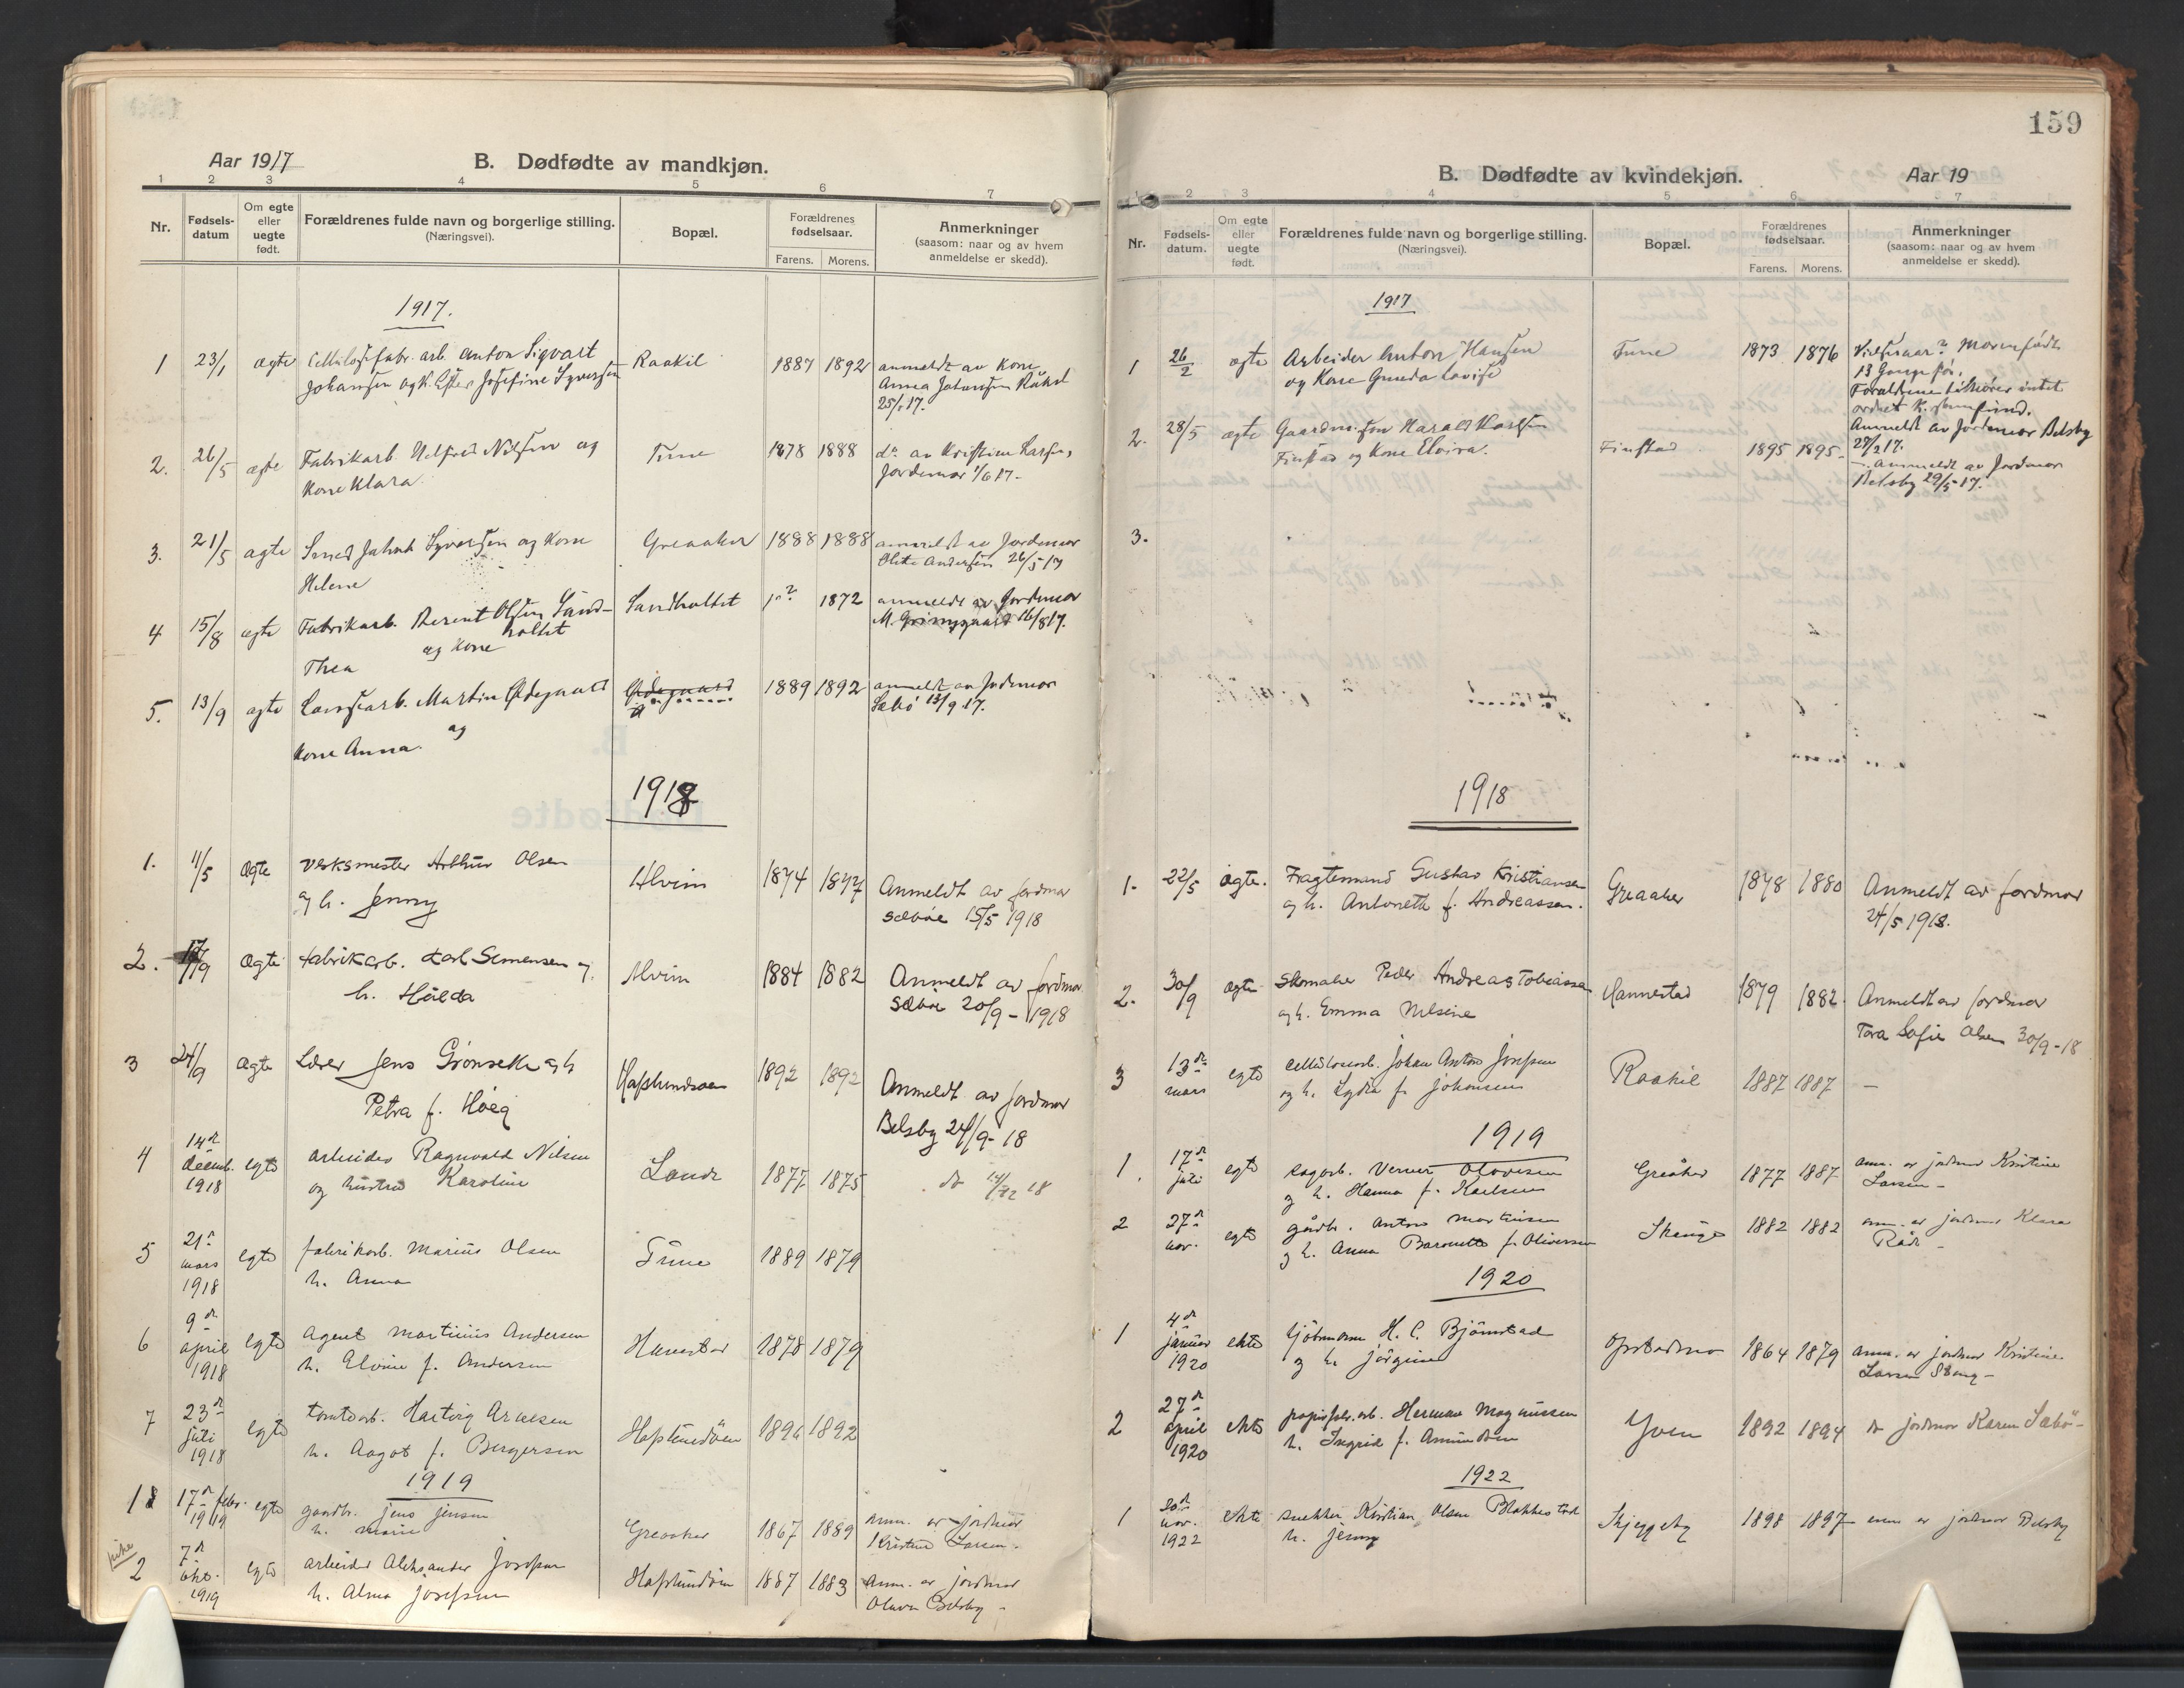 Aar 1917
B. Dødfødte av mandkjøn.
1 2 3 4 5 6 7
Nr.
Fødsels-
datum
Om egte
eller
uegte
født.
Forældrenes fulde navn og borgerlige stilling.
(Næringsvei).
Bopæl.
Forældrenes
fødselsaar.
Farens. Morens.
Anmerkninger
(saasom: naar og av hvem
anmeldelse er skedd).
1917.
1 23/1 ægte Cellulosefabr. arb. Anton Sigvart Raakil 1887 1892 anmeldt av Kone
Johansen og K. Ester Josefine Syversen Anna Johansen Råkil
25/1 17.
2. 26/5 ægte Fabrikarb. Nilsen og Tune 1878 1888 do av Kristine Larsen,
Kone Klara. Jordemor 1/6 17.
3. 21/5 ægte Smed Syversen og Kone Greaaker 1888 1888 anmeldt av Jordemor
Helene Andersen 26/5 17
4 15/8 ægte Fabrikarb. Berent Olsen Sand- Sandholtet 1872 anmeldt av Jordemor
holtet M. Grimsgaard 16/8 17.
og Kone
Thea
5. 13/9 ægte Martin Ødegaard Ødegaard 1889 1892 anmeldt av Jordemor
Sæbö 13/9 17.
og
Kone Anna.
1918
1. 11/5 Ægte Verksmester Arthur Olsen Alvim 1874 1877 Anmeldt av Jordmor
og h. Jenny Sæbøe 15/5 1918
2. 17/9 Ægte Fabrikarb. Karl Simensen og Alvim 1884 1882 Anmeldt av Jordmor
h. Hulda Sæbøe 20/9 - 1918
3 24/9 Ægte Lærer Jens Grønseth og h Hafslundsøen 1892 1892 Anmeldt av Jordmor
Petra f. Høeg Belsby 24/9-18
4 14de egte arbeider Ragnvald Nilsen Lande 1877 1875 do 14/12 18
decemb. og hustru Karoline
1918
5 21de egte fabrikarb. Marius Olsen Tune 1889 1879
mars h. Anna
1918
6 9de egte Agent Martinius Andersen 1878 1879
april h. f. Andersen
1918
7 23de egte tomtearb. Hartvig Arvesen Hafslundöen 1892
juli h. Aagot f. Bergersen
1918
1919
1 17de febr. egte gaardbr. Jens Jensen Greaaker 1867 1889 anm. av jordmor
1919 h. Marie Kristine Larsen.
pike
2 7de egte arbeider Aleksander Josefsen Hafslundöen 1887 1883 Anm. av jordmor
okt. h. Alma Josefsen Belsby -
1919
159
B. Dødfødte av kvindekjøn.
Aar 19
1 2 3 4 5 6 7
Nr.
Fødsels-
datum.
Om egte
eller
uegte
født.
Forældrenes fulde navn og borgerlige stilling.
(Næringsvei).
Bopæl.
Forældrenes
fødselsaar.
Farens. Morens.
Anmerkninger
(saasom: naar og av hvem
anmeldelse er skedd).
1917
1 26/2 ægte Arbeider Anton Hansen Tune 1873 1876 Vielsesaar? Moren født
og Kone Gunda Lovise 13 Gange før.
Forældrene tilhører intet
ordnet K. samfund.
Anmeldt av Jordemor Belsby
27/2 17.
2. 28/5 ægte Harald Karlsen Finstad 1895 1895 - Anmeldt av Jordmor
Finstad og Kone Elvira. Belsby 29/5 - 17.
3.
1918
1. 22/5 ægte. Fragtemand Gustav Kristiansen Greaaker 1878 1880 Anmeldt av Jordmor
og h. Antonette f. Andreassen. 24/5 1918.
2. 30/9 ægte Skomaker Peder Andreas Tobiassen Hannestad 1879 1882. Anmeldt av Jordmor
og h. Emma Nilsine Tora Sofie Olsen 30/9-18
3 13de egte cellulosearb. Johan Anton Josefsen Raakil 1887 1887 —
mars og h. Lydia f. Johansen
1919
1. 17de egte Verner Olavesen Greåker 1877 1887 anm. av jordmor Kristine
juli og h. Hanna f. Karlsen Larsen -
2 27de egte gårdbr. Anton Martinsen 1882 1882 anm. av jordmor Klara
nov. og h. Anna f. Oliversen Råde -
1920
1 4de ekte H. C. Bjørnstad Opstadmoen 1864 1879 anm. av jordmor Kristine
januar og h. Jörgine Larsen -
1920
2 27de ekte Herman Magnussen Yven 1892 1894 do jordmor Karen Sæbö -
april h. Ingrid f. Amundsen
1920
1922
1 30de ekte snekker Kristian Olsen Blakkestad Skjeggeby 1898 1897 anm av jordmor Belsby
nov. h. Jenny
1922